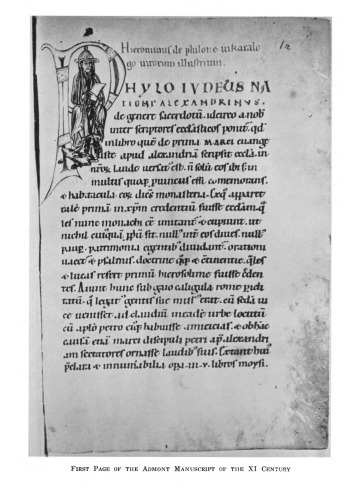 Hieronimus de philone in katalo
go virorum illustrium.
PHYLO IVDEUS NA
TIONE ALEXANDRINVS.
de genere sacerdotū. idcirco a nob
inter scriptores eccl̄asticos ponit̄. qd̄
in librū quē de prima MARCI euange
listę apud alexandriā scripsit eccl̄a. in
nr̄oꝝ laude versat est. n̄ solū eos ibi sʒ in
multis quoqꝫ provinciis esse memorans.
& habitacula eoꝝ dicēs monasteria. Ex qͦ apparet
talē primā in xp̄m credentiū fuisse ecclam. q̄
les nunc monachi ēē imitant̄ & cupiunt. ut
nichil cuiusquā ppriū sit. null' int̄ eos dives. null'
paup̄. patrimonia egentib; dividunt̄. orationi
vacet̄ & psalmis. doctrinę quoqꝫ & continentię. q̄les
& lucas refert primū hierosolimę fuisse cden
tes. Aiunt hunc sub gaio caligula romę pericli
tatū. q̊ legat' gentis suę miss' erat. cū scd̄a vi
ce venisset. ad claudiū in eadē urbe locutū
cū aplo petro eiusqꝫ habuisse amicicias. & ob hac
causā etiā marci discipuli petri ap̄ alexandri
am sectatores ornasse laudib; suis. Extant hui'
pclara & innūabilia opa. in. v. libros moysi.
FIRST PAGE OF THE ADMONT MANUSCRIPT OF THE XI CENTURY